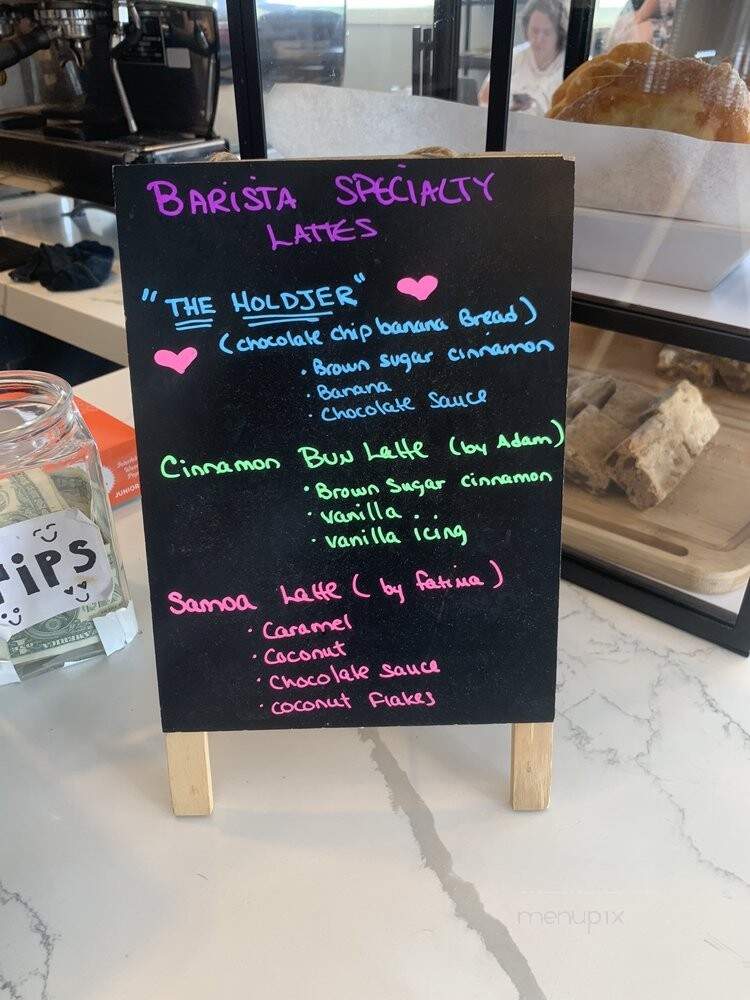 BARISTA SPECIALTY
LATTES
"THE HOLDJER"
(chocolate chip banana Bread)
· Brown sugar cinnamon
· Banana
· Chocolate Sauce
Cinnamon BUN Latte (by Adam)
· Brown Sugar cinnamon
· vanilla
· vanilla icing
Samoa Latte (by fatima)
· Caramel
· Coconut
· Chocolate sauce
· coconut Flakes
TIPS
JUNIOR
menupix